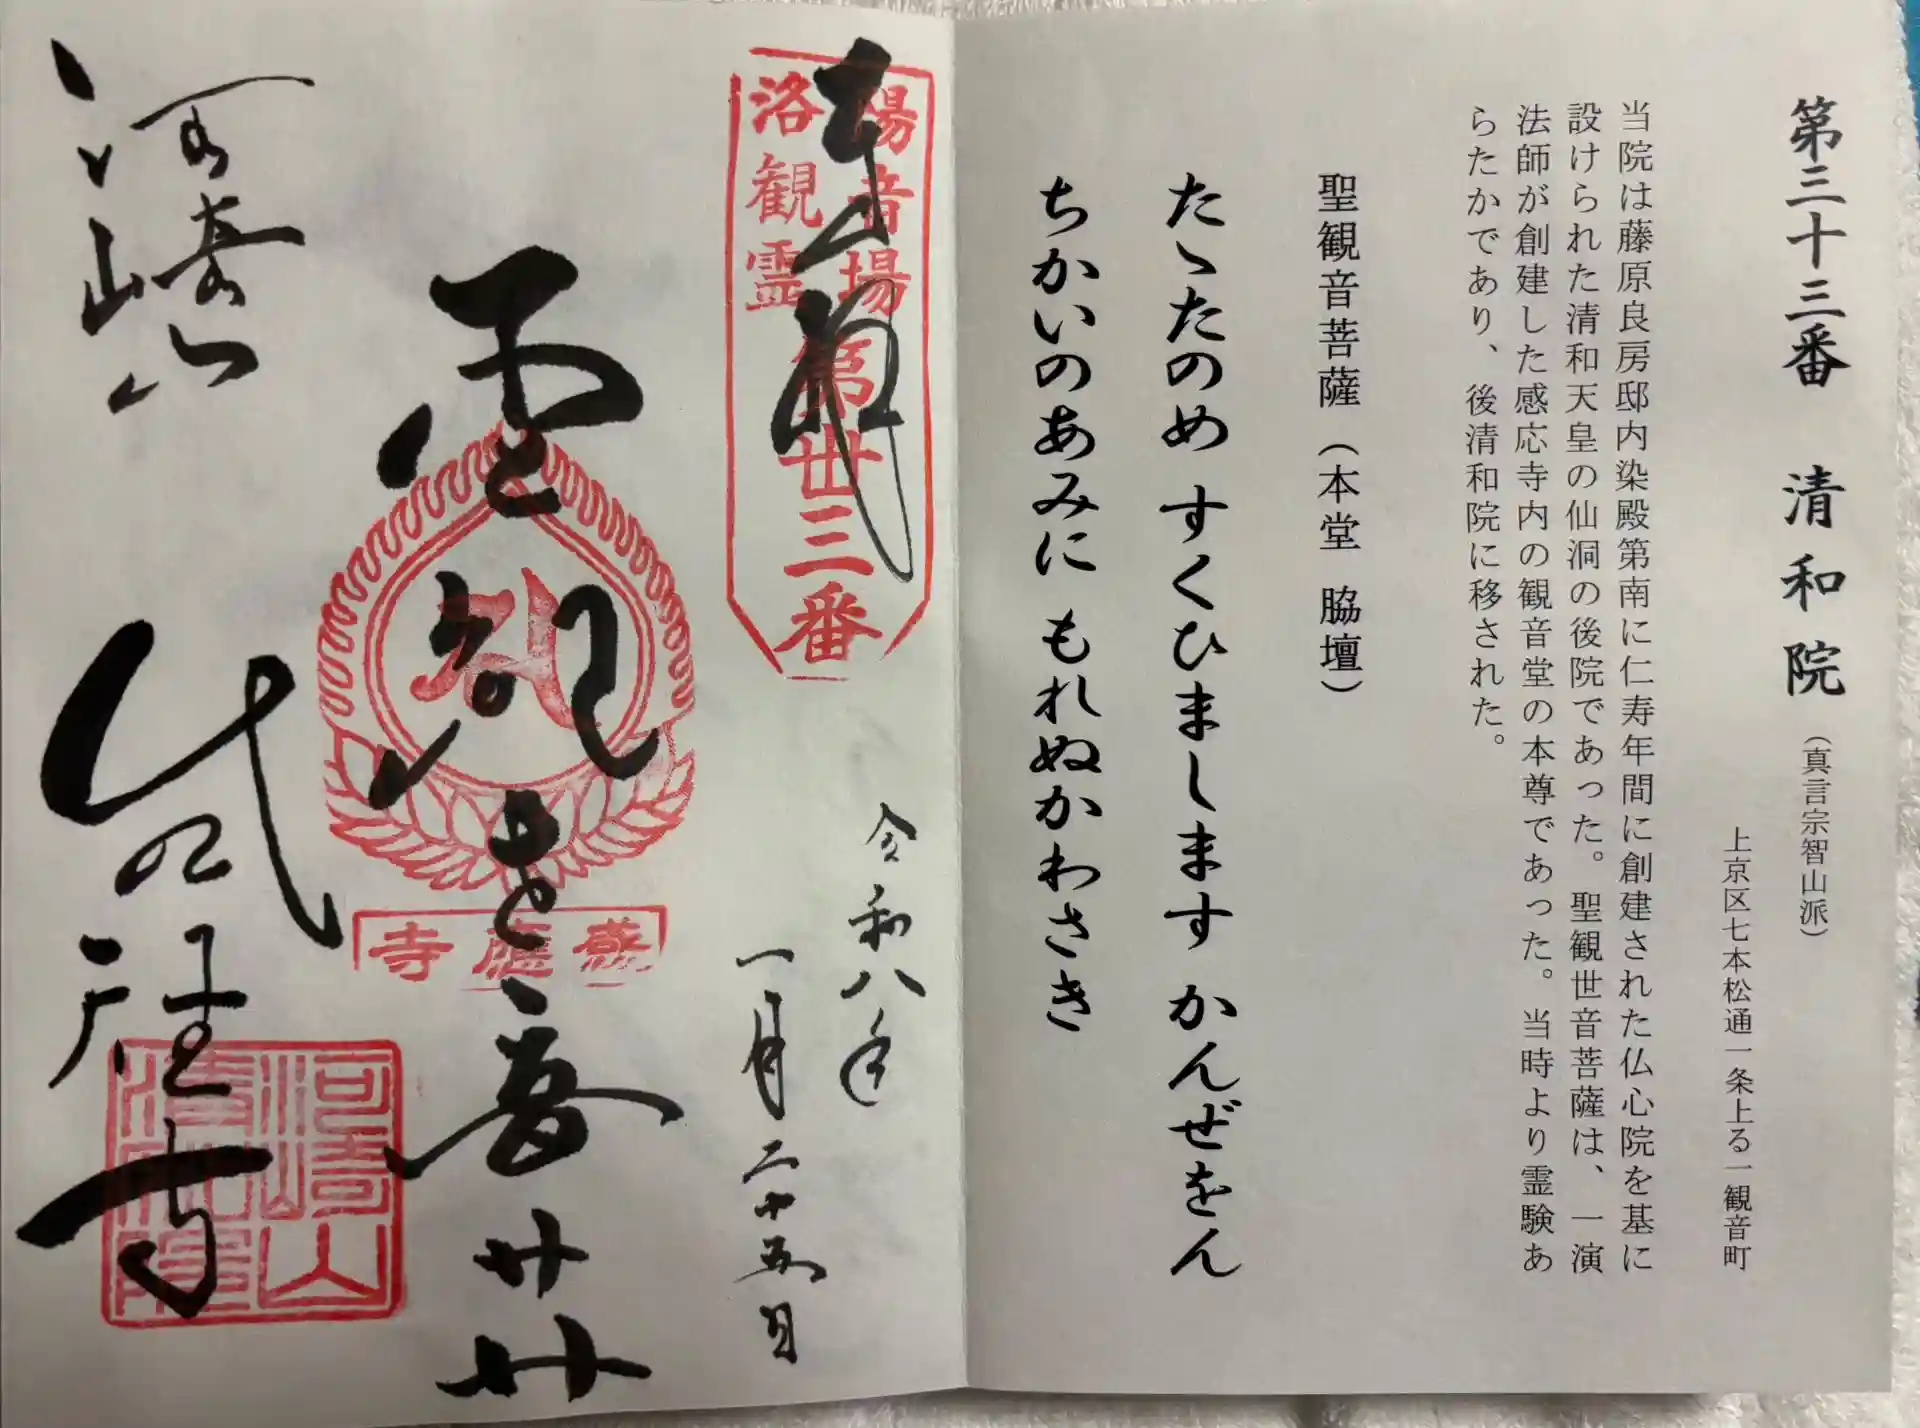 第三十三番 清和院（真言宗智山派）
上京区七本松通一条上る一観音町
当院は藤原良房邸内染殿第南に仁寿年間に創建された仏心院を基に
設けられた清和天皇の仙洞の後院であった。聖観世音菩薩は、一演
法師が創建した感応寺内の観音堂の本尊であった。当時より霊験あ
らたかであり、後清和院に移された。
聖観音菩薩（本堂 脇壇）
たゝたのめ すくひまします かんぜをん
ちかいのあみに もれぬかわさき
奉拝
洛陽観音霊場
第丗三番
令和八年
一月二十五日
感應寺
河崎山